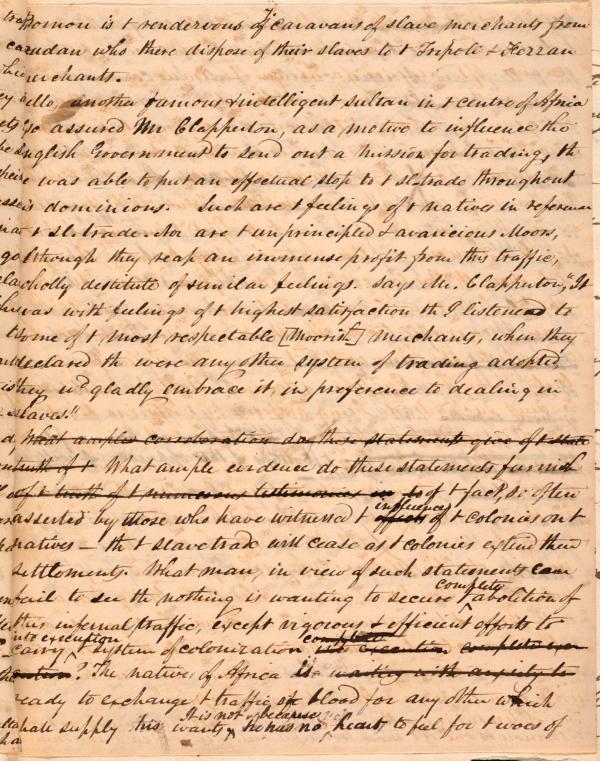 Bornou is t rendezvous of caravans of slave merchants from
Soudan who there dispose of their slaves to t Tripoli & Fezzan
merchants.
Bello, another famous & intelligent sultan in t centre of Africa
assured Mr Clapperton, as a motive to influence the
English Government to send out a mission for trading, th
he was able to put an effectual stop to t sl. trade throughout
his dominions. Such are t feelings of t natives in reference
to t sl. trade. Nor are t unprincipled & avaricious Moors,
although they reap an immense profit from this traffic,
wholly destitute of similar feelings. Says Mr. Clapperton, "It
was with feelings of t highest satisfaction th I listened to
some of t most respectable [Moorish] merchants, when they
declared th were any other system of trading adopted
they wd gladly embrace it, in preference to dealing in
slaves."
What ample corroboration do these statements give of t state
truth of t What ample evidence do these statements furnish
of t truth of t numerous testimonies in to of t fact, so often
asserted by those who have witnessed t influence effects of t colonies on t
natives — th t slave trade will cease as t colonies extend their
settlements. What man, in view of such statements can
fail to see th nothing is wanting to secure complete abolition of
this infernal traffic, except vigorous & efficient efforts to
carry into execution t system of colonization into execution complete
? The native of Africa is waiting with anxiety to
ready to exchange t traffic of blood for any other which
supply his wants, It is not because he has no heart to feel for t woes of